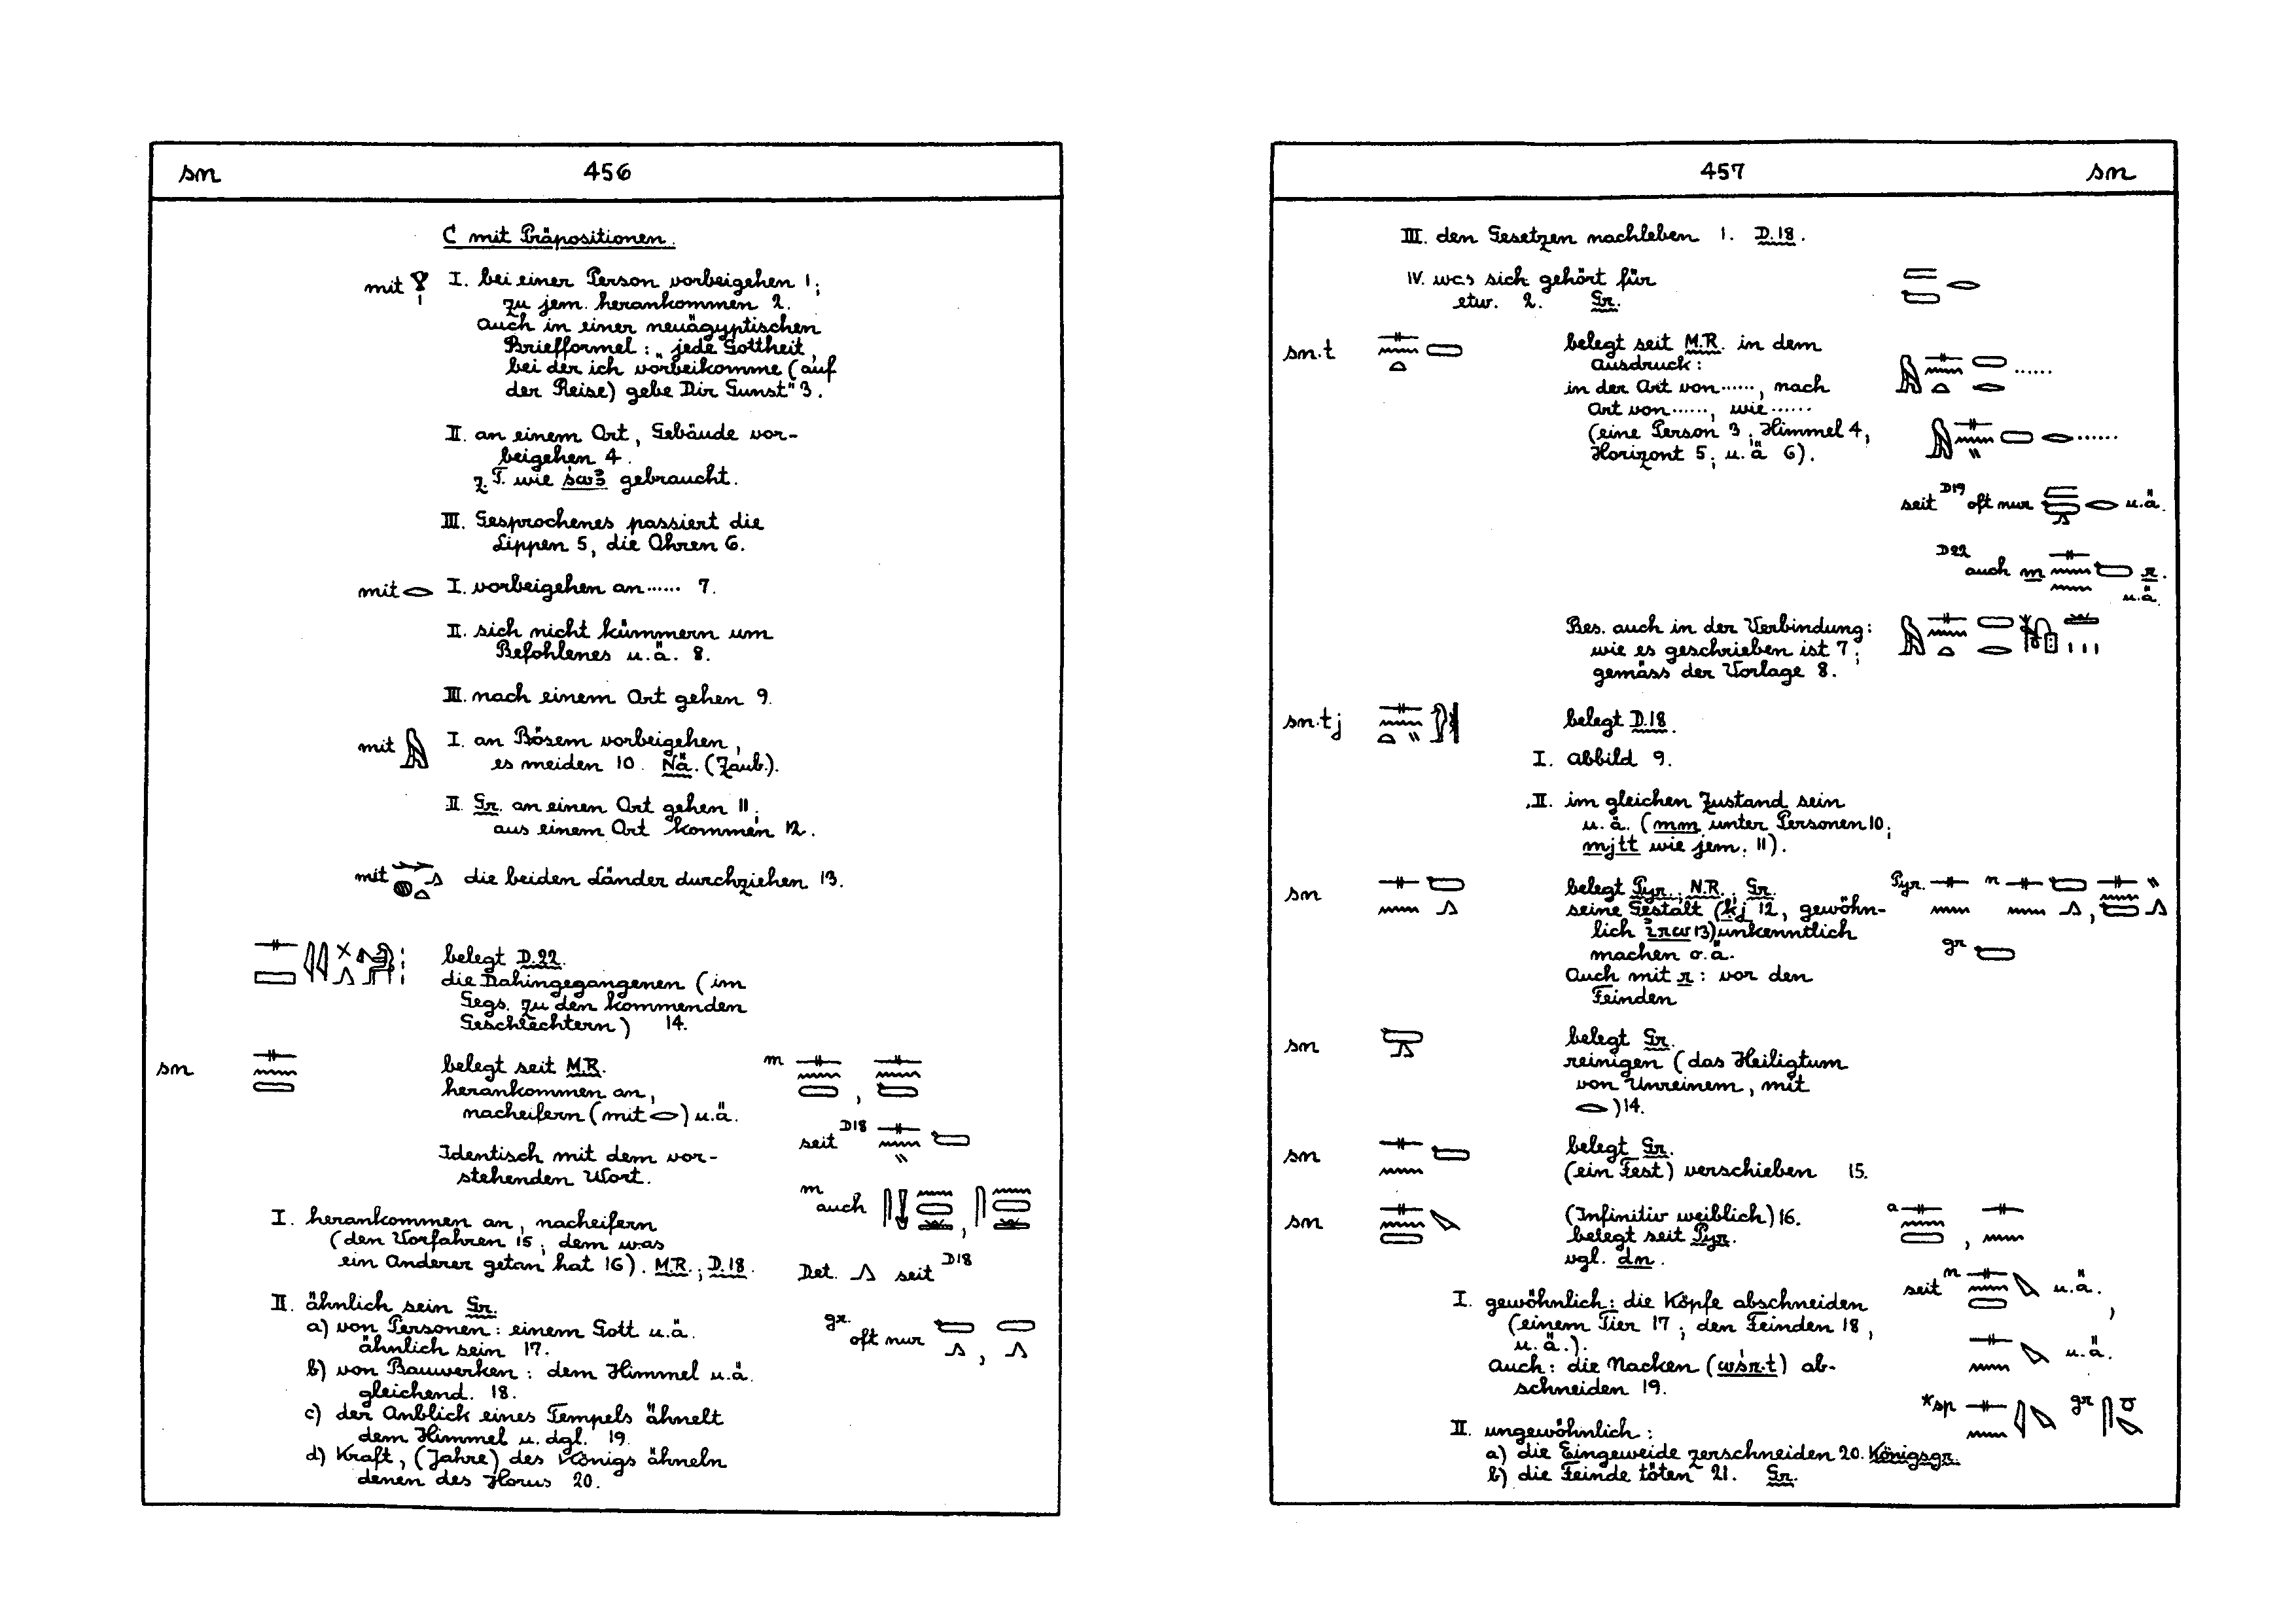 sn 456
C mit Präpositionen.
mit I. bei einer Person vorbeigehen 1;
zu jem. herankommen 2.
auch in einer neuägyptischen
Briefformel: „jede Gottheit,
bei der ich vorbeikomme (auf
der Reise) gebe Dir Gunst" 3.
II. an einem Ort, Gebäude vor-
beigehen 4.
z.T. wie sw3 gebraucht.
III. Gesprochenes passiert die
Lippen 5, die Ohren 6.
mit I. vorbeigehen an ...... 7.
II. sich nicht kümmern um
Befohlenes u.ä. 8.
III. nach einem Ort gehen 9.
mit I. an Bösem vorbeigehen,
es meiden 10. Nä. (Zaub.).
II. Gr. an einen Ort gehen 11;
aus einem Ort kommen 12.
mit die beiden Länder durchziehen 13.
belegt D.22.
die Dahingegangenen (im
Gegs. zu den kommenden
Geschlechtern) 14.
sn belegt seit M.R. m
herankommen an,
nacheifern (mit ) u.ä.
seit D18
Identisch mit dem vor-
stehenden Wort.
m auch
I. herankommen an, nacheifern
(den Vorfahren 15; dem was
ein Anderer getan hat 16). M.R.; D.18.
Det. seit D18
II. ähnlich sein Gr.
a) von Personen: einem Gott u.ä.
ähnlich sein 17.
gr. oft nur
b) von Bauwerken: dem Himmel u.ä.
gleichend. 18.
c) der Anblick eines Tempels ähnelt
dem Himmel u. dgl. 19.
d) Kraft, (Jahre) des Königs ähneln
denen des Horus 20.
457 sn
III. den Gesetzen nachleben 1. D.18.
IV. was sich gehört für
etw. 2. Gr.
sn.t belegt seit M.R. in dem
Ausdruck:
in der Art von ......, nach
Art von ......, wie ......
(eine Person 3; Himmel 4,
Horizont 5; u.ä 6).
seit D19 oft nur u.ä.
D22 auch m r.
u.ä.
Bes. auch in der Verbindung:
wie es geschrieben ist 7;
gemäss der Vorlage 8.
sn.tj belegt D.18.
I. Abbild 9.
II. im gleichen Zustand sein
u.ä. (mm unter Personen 10;
mjtt wie jem. 11).
sn belegt Pyr.; N.R.; Gr. Pyr. n
seine Gestalt (kj 12, gewöhn-
lich irw 13) unkenntlich
machen o.ä. gr
Auch mit r: vor den
Feinden
sn belegt Gr.
reinigen (das Heiligtum
von Unreinem, mit
) 14.
sn belegt Gr.
(ein Fest) verschieben 15.
sn (Infinitiv weiblich) 16. a
belegt seit Pyr.
vgl. dn.
seit n u.ä.,
I. gewöhnlich: die Köpfe abschneiden
(einem Tier 17; den Feinden 18,
u.ä.). u.ä.
Auch: die Nacken (wsr.t) ab-
schneiden 19.
*sp gr
II. ungewöhnlich:
a) die Eingeweide zerschneiden 20. Königsgr.
b) die Feinde töten 21. Gr.